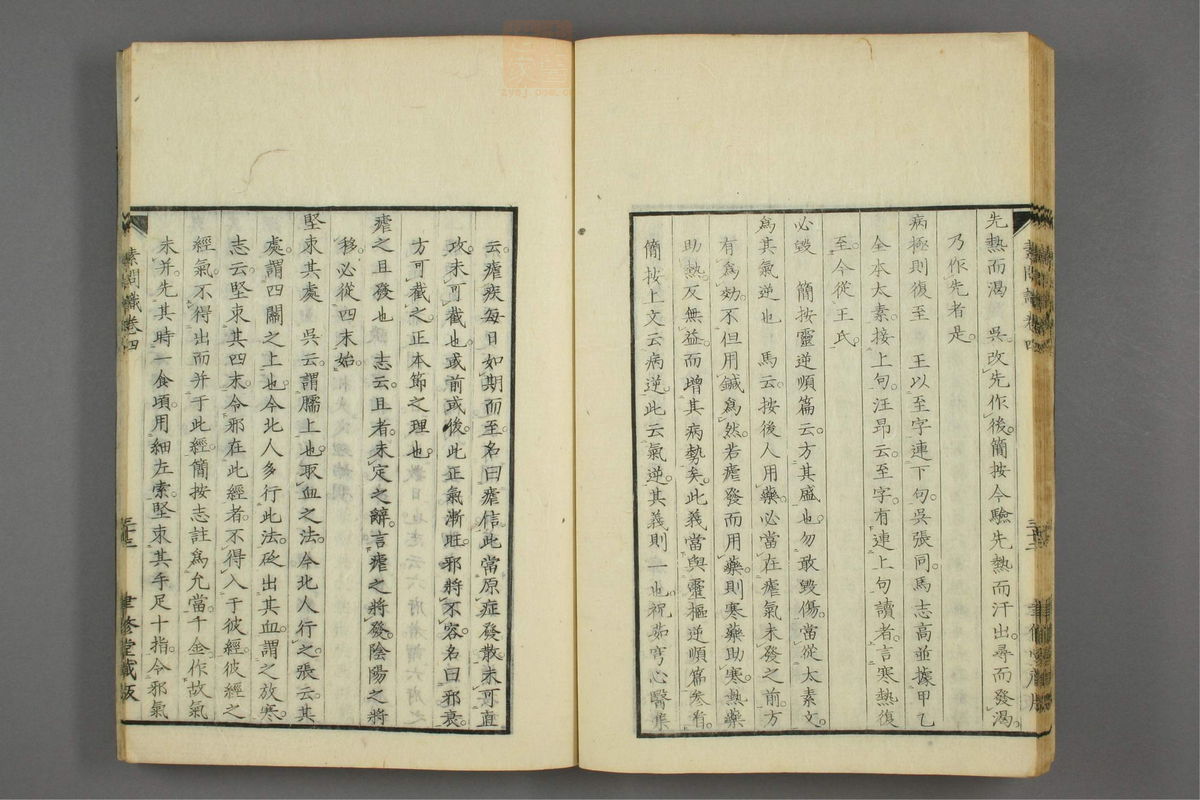 先熱而渴 吳。改先作後。簡按今驗先熱而汗出。尋而發渴。
乃作先者是。
病極則復至 王以至字連下句。吳張同。馬志高並據甲乙
全本太素。接上句。汪昂云。至字。有連上句讀者。言寒熱復
至。今從王氏。
必毀 簡按靈逆順篇云。方其盛也。勿敢毀傷。當從太素文。
爲其氣逆也 馬云。按後人用藥。必當在瘧氣未發之前。方
有爲効。不但用鍼爲然。若瘧發而用藥。則寒藥助寒。熱藥
助熱。反無益。而增其病勢矣。此義當與靈樞逆順篇參看。
簡按上文云病逆。此云氣逆。其義則一也。祝茹穹心醫集
云。瘧疾每日如期而至。名曰瘧信。此當原症發散。未可直
攻。未可截也。或前或後。此正氣漸旺。邪將不容。名曰邪衰。
方可截之。正本節之理也。
瘧之且發也 志云。且者。未定之辭。言瘧之將發。陰陽之將
移。必從四末始。
堅束其處 吳云。謂臑上也。取血之法。今北人行之。張云。其
處。謂四關之上也。今北人多行此法。砭出其血。謂之放寒。
志云。堅束其四末。令邪在此經者。不得入于彼經。彼經之
經氣。不得出而并于此經。簡按志註爲允當。千金作故氣
未并。先其時一食頃。用細左索。堅束其手足十指。令邪氣
素問識卷四
三十三
聿修堂藏版